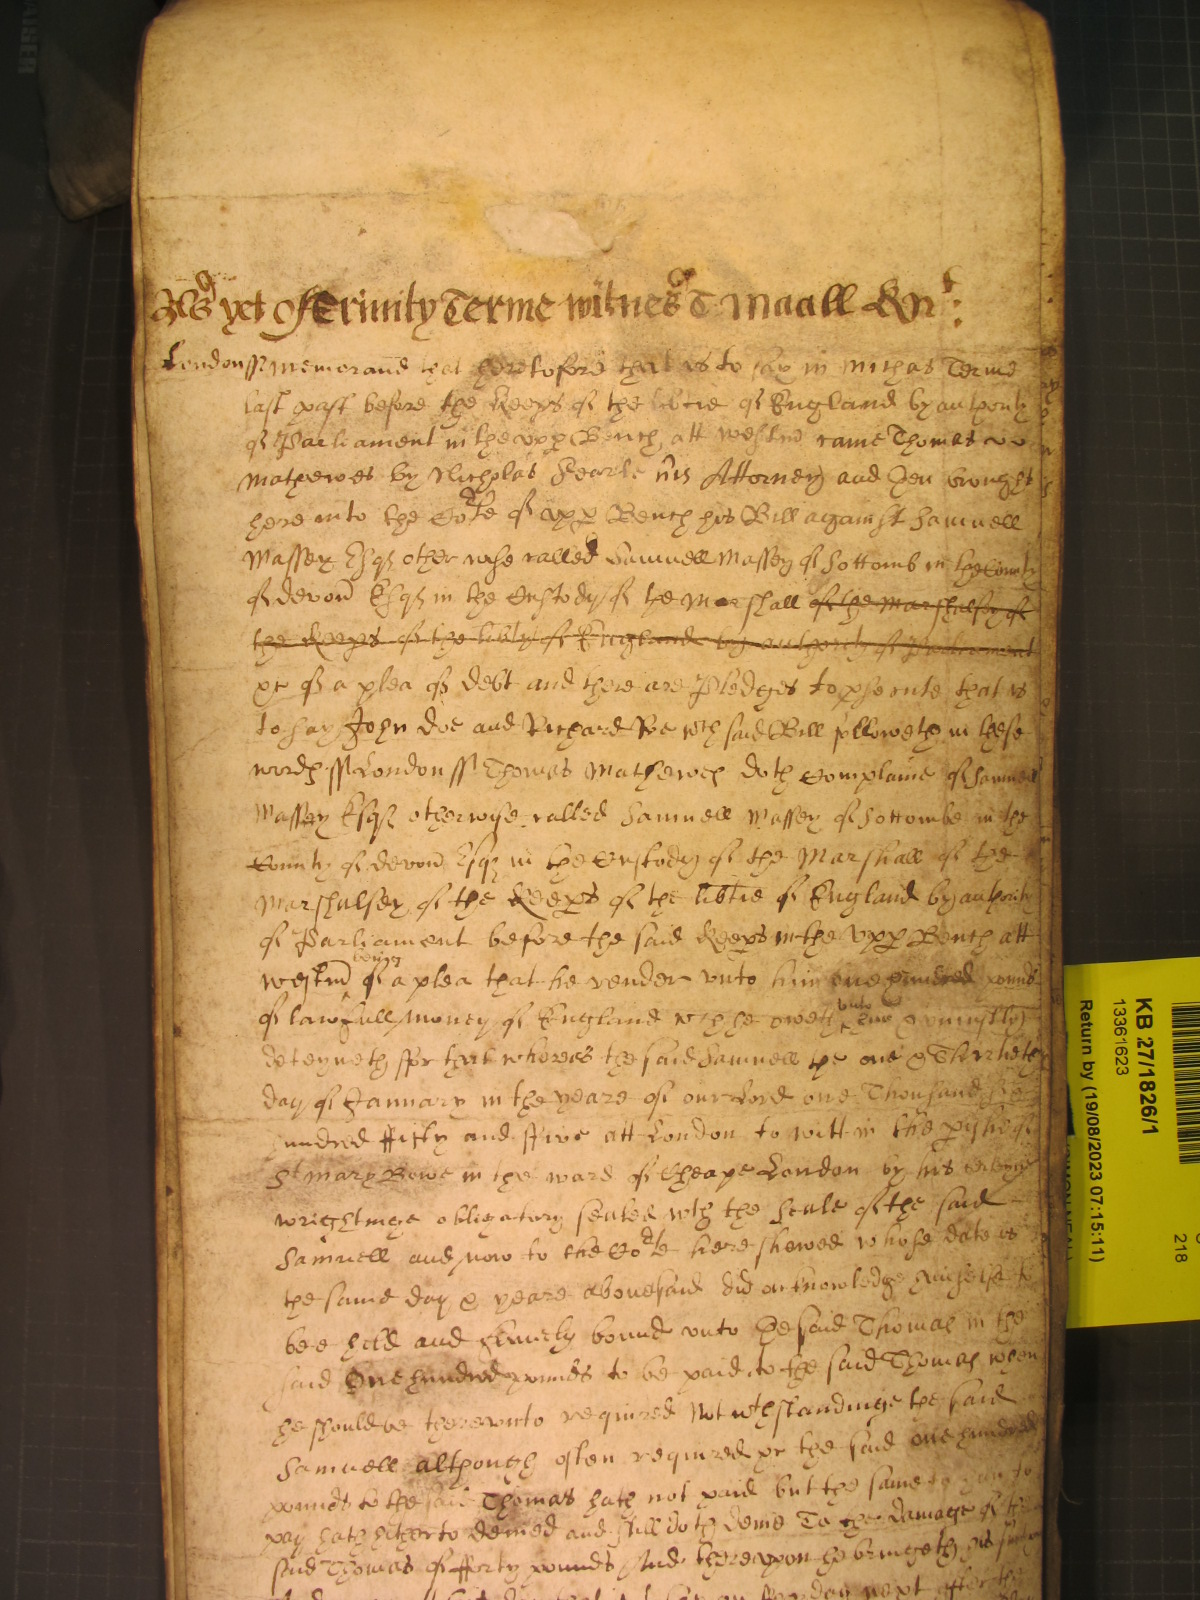 As yet of Trinity Terme witnes T Maall Knt:
London ss Memorand that heretofore that is to say in Michas Terme
last past before the Keeps of the libtie of England by authority
of Parliament in the upp Bench att Westm came Thomas
Mathewes by Nicholas Searle his Attorney and then brought
here into the Corte of upp Bench his Bill against Samuell
Massey Esqr otherwise called Samuell Massey of Sottomb in the County
of Devon Esqr in the Custody of the Marshall of the Marshalsey of
the Keeps of the libty of England by authority of Parliament
&c of a plea of debt and there are Pledges to psecute that is
to say John Doe and Richard Roe wch said Bill followeth in these
words ss London ss Thomas Mathewes doth Complaine of Samuell
Massey Esqr otherwise called Samuell Massey of Sottombe in the
County of Devon Esqr in the Custody of the Marshall of the
Marshalsey of the Keeps of the libtie of England by authority
of Parliament before the said Keeps in the Upp Bench att
Westm being of a plea that he render unto him one hundred pounds
of lawfull money of England wch he oweth unto him & uniustly
deteyneth for that whereas the said Samuell the one & Thirtieth
day of January in the yeare of our Lord one Thousand six
hundred ffifty and ffive att London to witt in the pishe of
St Mary Bowe in the ward of Cheape London by his certeyne
wrightinge obligatory sealed wth the seale of the said
Samuell and now to the Corte here shewed whose date is
the same day & yeare abovesaid did acknowledge himselfe to
bee held and firmely bound unto the said Thomas in the
said One hundred pounds to be paid to the said Thomas when
he should be thereunto required Notwthstandinge the said
Samuell although often required &c the said one hundred
pounds to the said Thomas hath not paid but the same to him to
pay hath hitherto denied and still doth denie To the damage of the
said Thomas of fforty pounds And thereupon he bringeth his suite
next after the
KB 27/1826/1
13361623
Return by (19/08/2023 07:15:11)
218